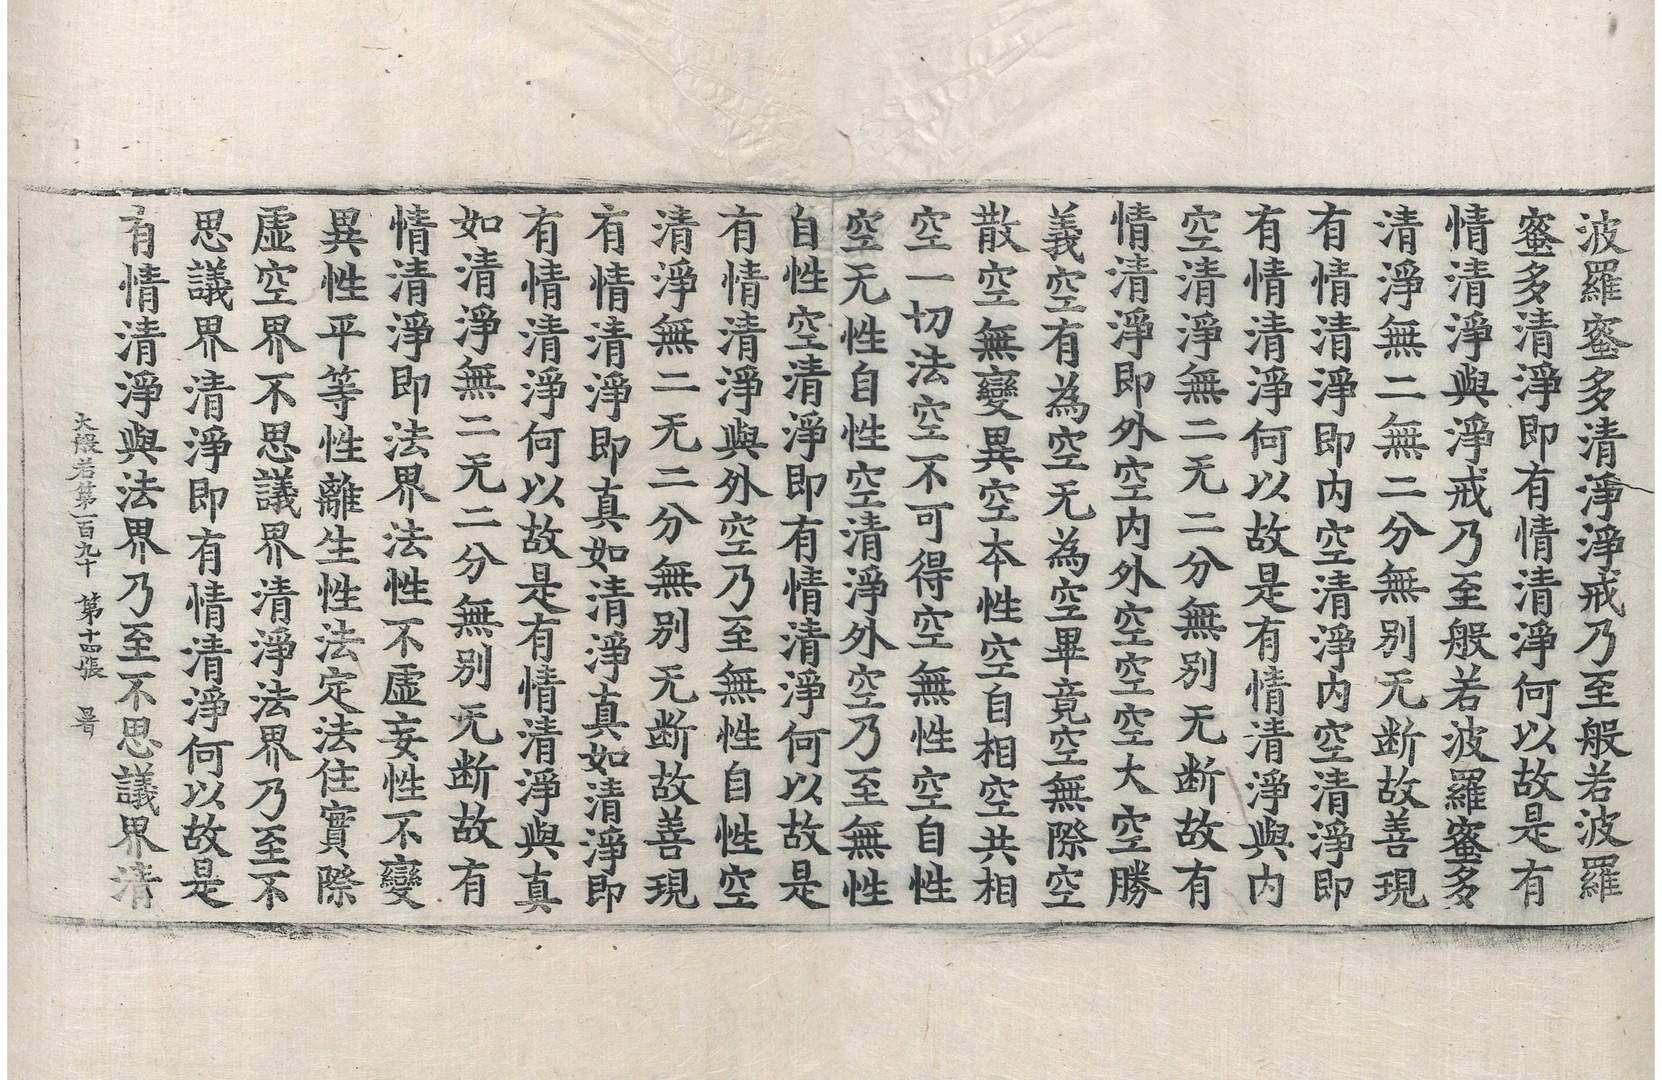 波羅蜜多清淨淨戒乃至般若波羅
蜜多清淨即有情清淨何以故是有
情清淨與淨戒乃至般若波羅蜜多
清淨無二無二分無別无断故善現
有情清淨即内空清淨内空清淨即
有情清淨何以故是有情清淨與内
空清淨無二无二分無別无断故有
情清淨即外空内外空空空大空勝
義空有為空无為空畢竟空無際空
散空無變異空本性空自相空共相
空一切法空不可得空無性空自性
空无性自性空清淨外空乃至無性
自性空清淨即有情清淨何以故是
有情清淨與外空乃至無性自性空
清淨無二无二分無別无断故善現
有情清淨即真如清淨真如清淨即
有情清淨何以故是有情清淨與真
如清淨無二无二分無別无断故有
情清淨即法界法性不虛妄性不變
異性平等性離生性法定法住實際
虛空界不思議界清淨法界乃至不
思議界清淨即有情清淨何以故是
有情清淨與法界乃至不思議界清
大般若第一百九十 第十四張